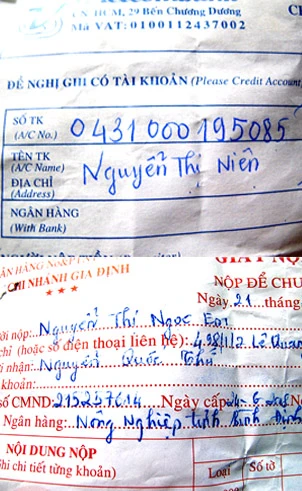 CN HCM, 29 Bến Chương Dương
Mã VAT: 0100112437002
ĐỀ NGHỊ GHI CÓ TÀI KHOẢN (Please Credit Account
SỐ TK
(A/C No.) 0431000195085
TÊN TK
(A/C Name) Nguyễn Thị Niên
ĐỊA CHỈ
(Address)
NGÂN HÀNG
(With Bank)
CHI NHÁNH GIA ĐỊNH
NỘP ĐỂ CHU
Ngày 21 tháng
ời nộp: Nguyễn Thị Ngọc
chỉ (hoặc số điện thoại liên hệ): 498/1/2 Lê Quan
ời nhận: Nguyễn Quốc
khoản:
số CMND: 215247614 Ngày cấp
Ngân hàng: Nông Nghiệp tỉnh Bình Định
NỘI DUNG NỘP
hi chi tiết từng khoản)
Loại
Số tờ